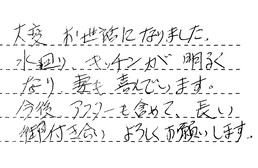 大変 お世話になりました。
水廻り、キッチンが 明るく
なり 妻も 喜んでいます。
今後 アフターも含めて、長い
御付き合い よろしくお願いします。